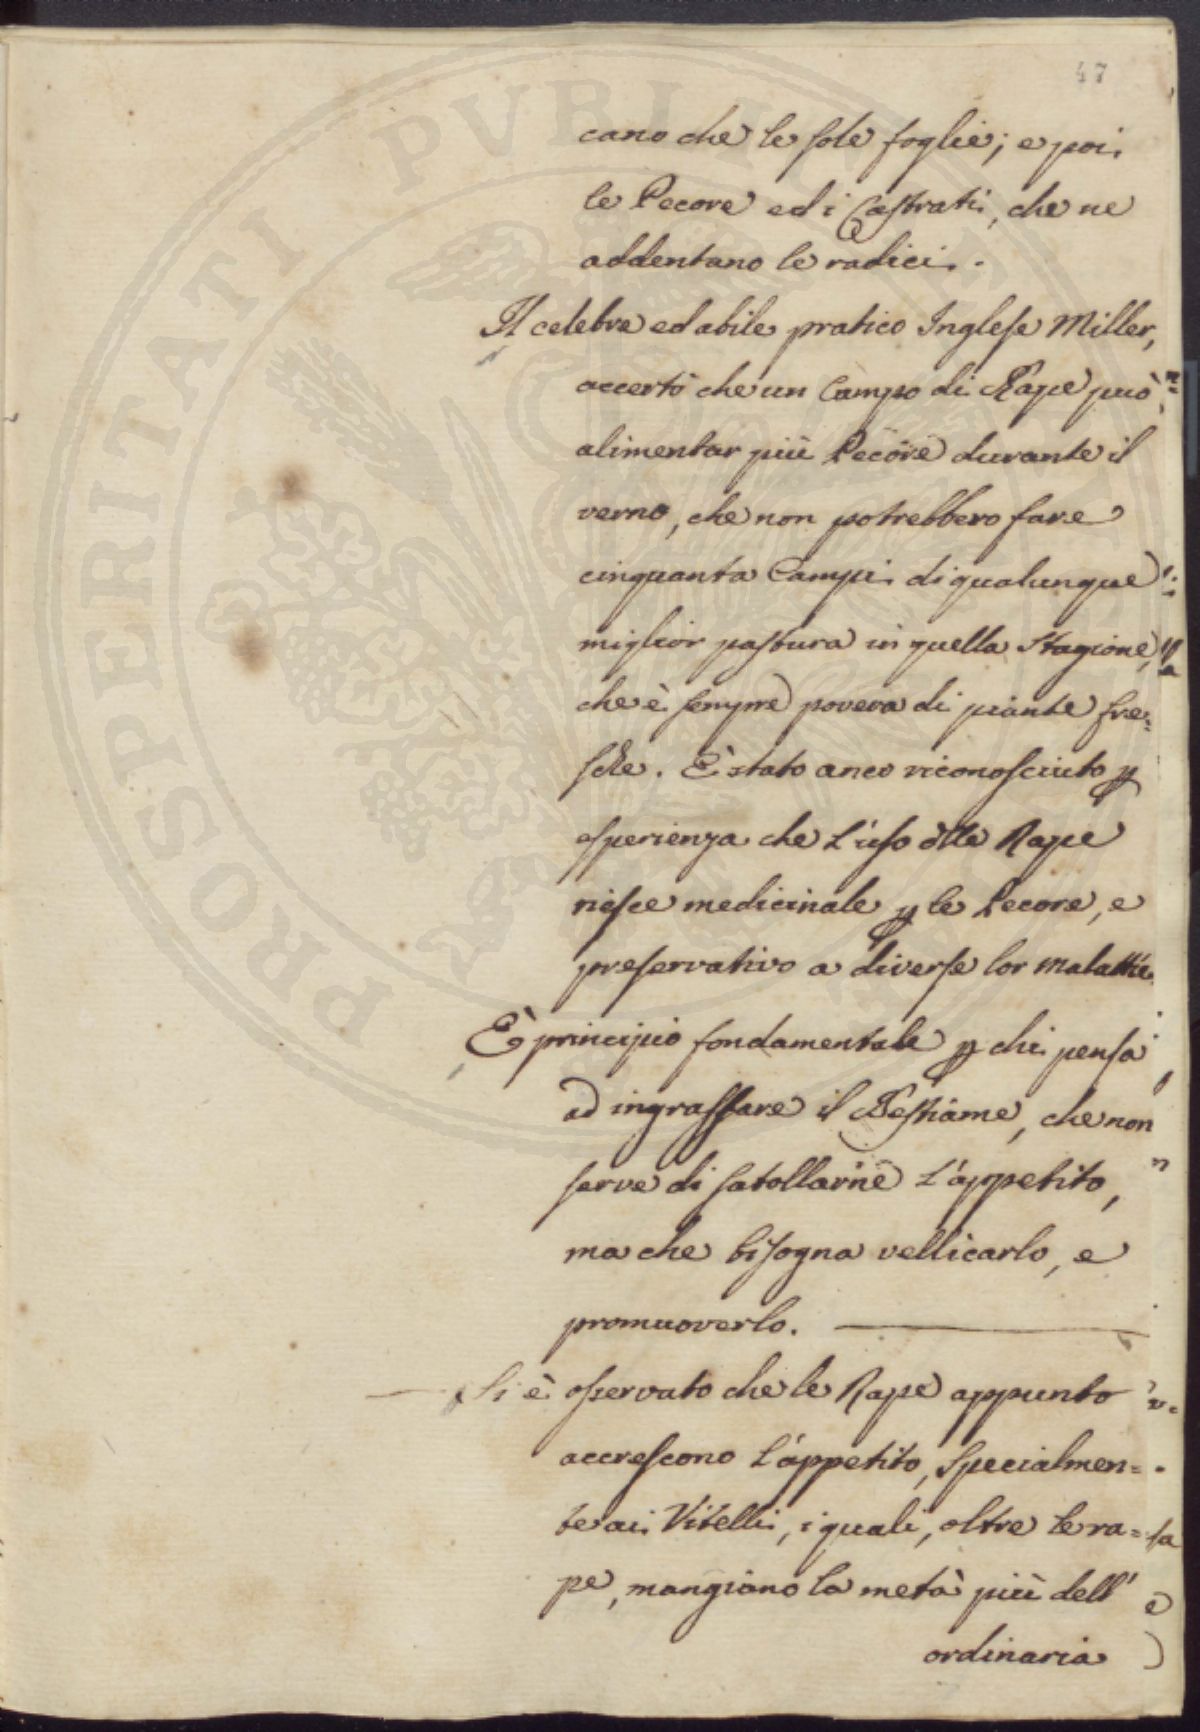 47
cano che le sole foglie; e poi
le Pecore ed i Castrati, che ne
addentano le radici.
Il celebre ed abile pratico Inglese Miller,
accertò che un Campo di Rape può
alimentar più Pecore durante il
verno, che non potrebbero fare
cinquanta Campi di qualunque
miglior pastura in quella Stagione,
che è sempre povera di piante fre=
sche. È stato anco riconosciuto p
esperienza che l'uso dlle Rape
riesce medicinale p le Pecore, e
preservativo a diverse lor malattie.
È principio fondamentale p chi pensa
ad ingrassare il Bestiame, che non
serve di satollarne l'appetito,
ma che bisogna vellicarlo, e
promuoverlo.
Si è osservato che le Rape appunto
accrescono l'appetito, specialmen=
te ai Vitelli, i quali, oltre le ra=
pe, mangiano la metà più dell'
ordinaria
PROSPERITATI PVBLICAE